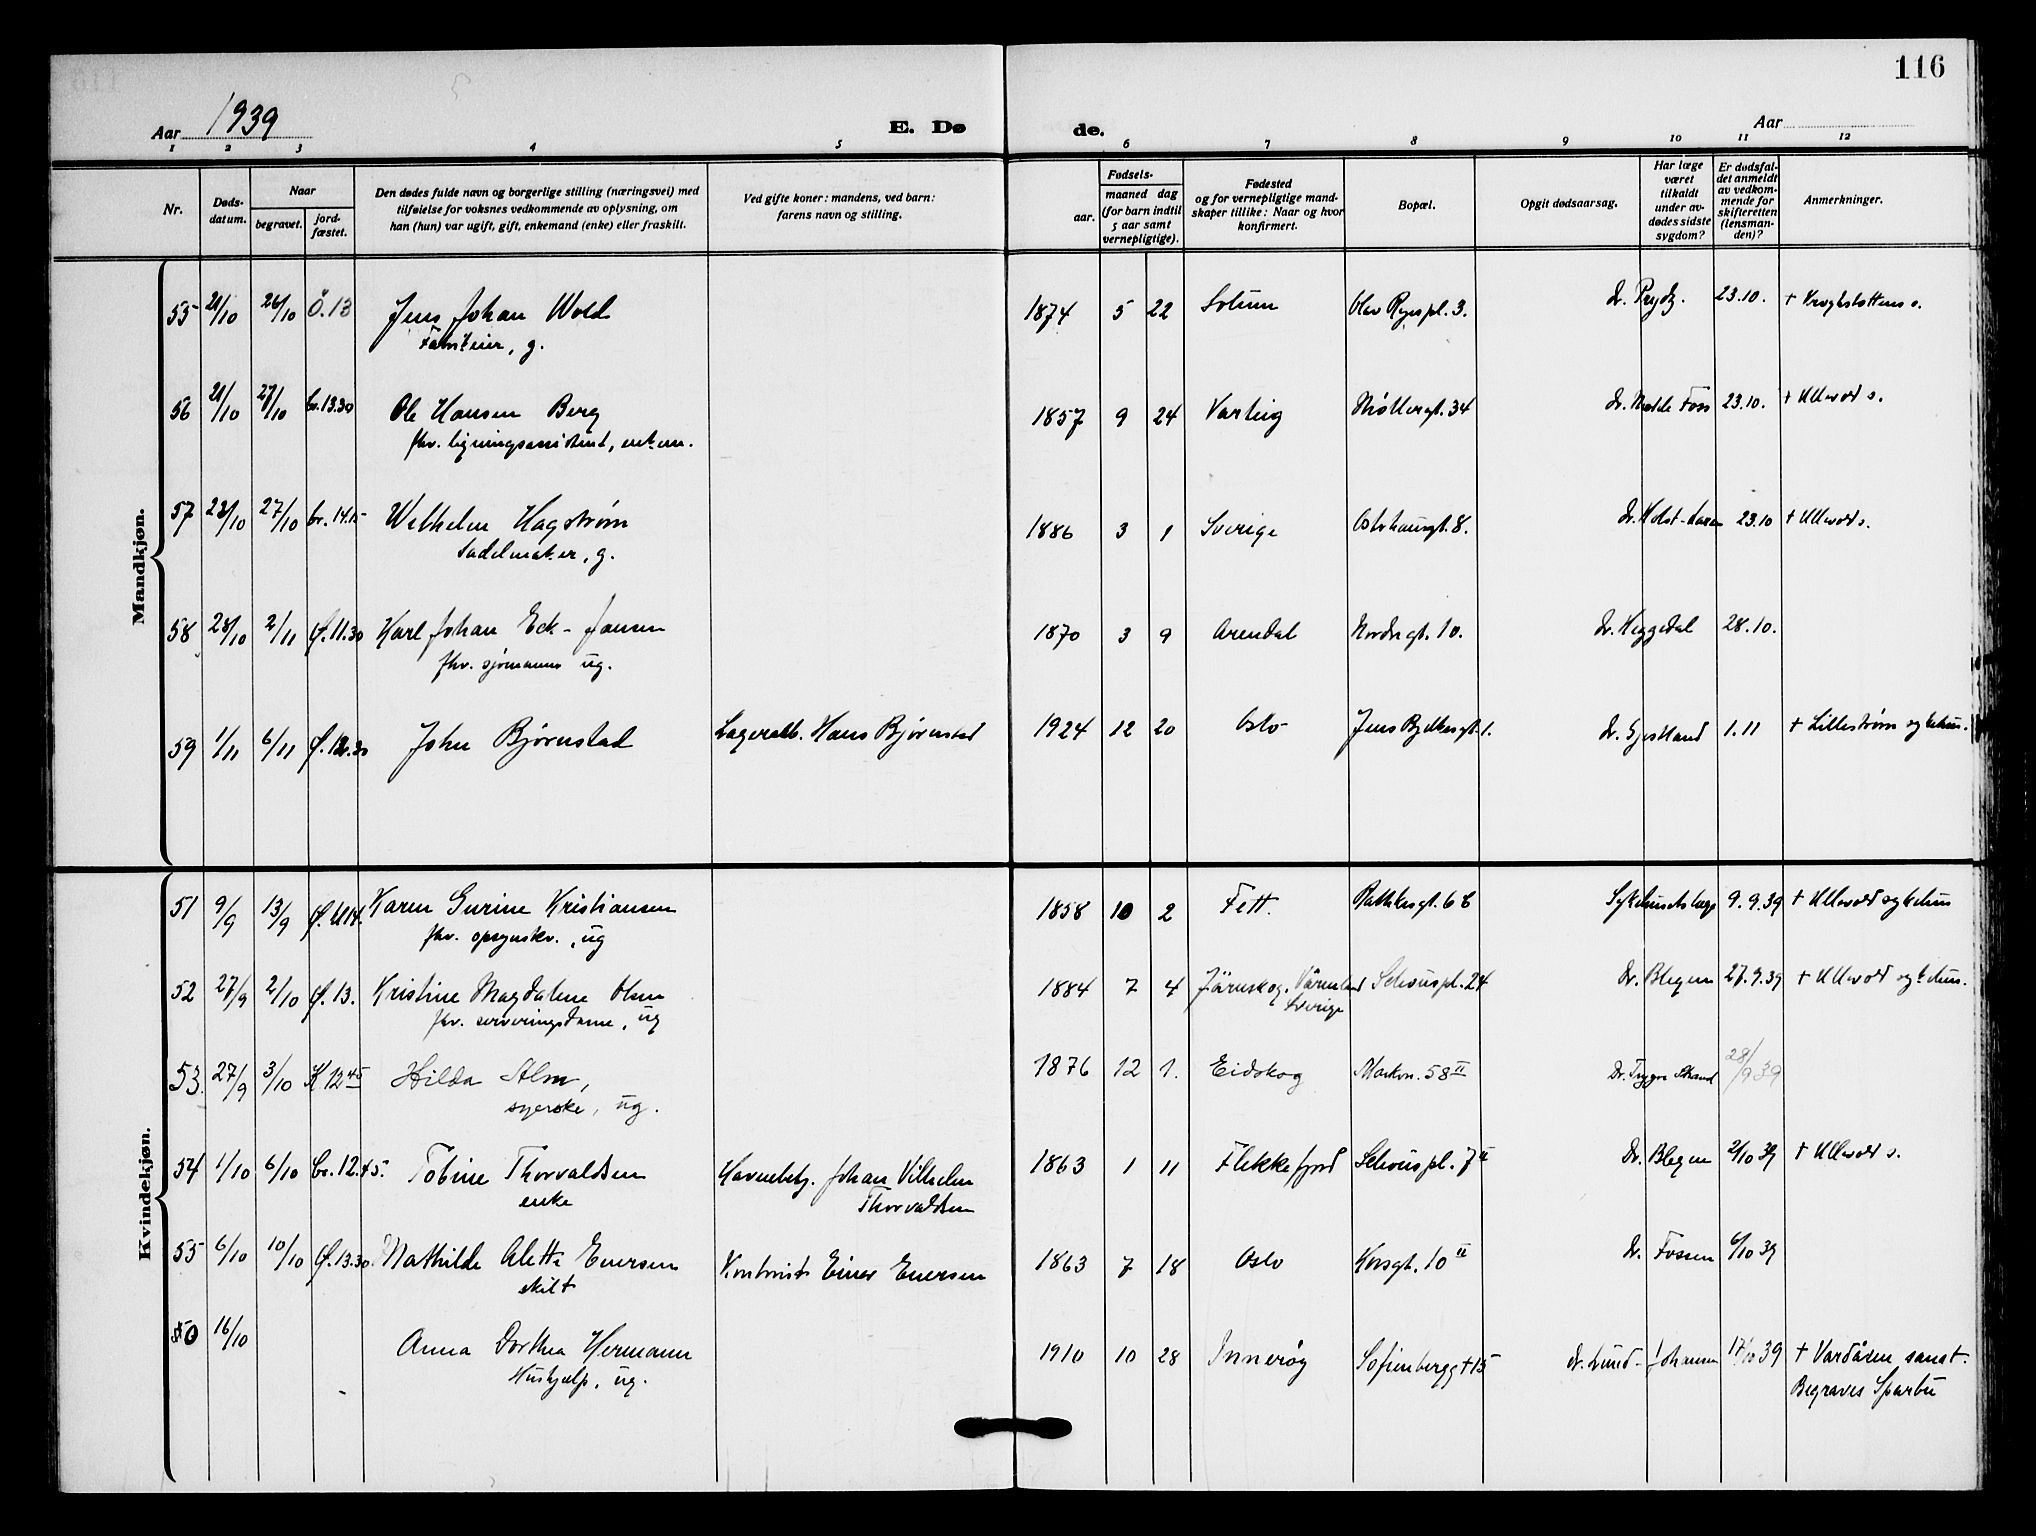 116
Aar 1939
E. Dø
de.
Aar
1 2 3 4 5 6 7 8 9 10 11 12
Nr.
Døds-
datum.
Naar
begravet.
jord-
fæstet.
Den dødes fulde navn og borgerlige stilling (næringsvei) med
tilføielse for voksnes vedkommende av oplysning, om
han (hun) var ugift, gift, enkemand (enke) eller fraskilt.
Ved gifte koner: mandens, ved barn:
farens navn og stilling.
Fødsels-
aar.
maaned dag
(for barn indtil
5 aar samt
vernepligtige).
Fødested
og for vernepligtige mand-
skaper tillike: Naar og hvor
konfirmert.
Bopæl.
Opgit dødsaarsag.
Har læge
været
tilkaldt
under av-
dødes sidste
sygdom?
Er dødsfal-
det anmeldt
av vedkom-
mende for
skifteretten
(lensman-
den)?
Anmerkninger.
Mandkjøn.
55 21/10 26/10 Ö. 13 Jens Johan Wold 1874 5 22 Solum Olav Ryespl. 3. Dr. Prydz. 23.10. + Kroghstøttens s.
g.
56 21/10 27/10 Cr. 13.30 Ole Hansen Berg 1857 9 24 Varteig Møllergt. 34 Dr. Foss 23.10. + Ullevål s.
fhv. ligningsassistent, enkem.
57 23/10 27/10 Cr. 14.15 Wilhelm Hagstrøm 1886 3 1 Sverige Osterhausgt. 8. Dr. Holst-Larsen 23.10 + Ullevål s.
Sadelmaker, g.
58 28/10 2/11 Ø. 11.30 Karl Johan Eck-Jansen 1870 3 9 Arendal Nordregt. 10. Dr. Heggedal 28.10.
fhv. sjømann ug.
59 1/11 6/11 Ø. 12.30 John Bjørnstad Lagerarb. Hans Bjørnstad 1924 12 20 Oslo Jens Bjelkesgt. 1. Dr. Gjestland 1.11 + Lillestrøm sykehus.
Kvindekjøn.
51 9/9 13/9 Ø. 14. Karen Gurine Kristiansen 1858 10 2 Fett. Rathkesgt. 6 Sykehusets læge 9.9.39 + Ullevål sykehus
fhv. opsynskv., ug
52 27/9 2/10 Ø. 13. Kristine Magdalene Olsen 1884 7 4 Järnskog, Värmland Schouspl. 24 Dr. Blegen 27.9.39 + Ullevål sykehus.
fhv. serveringsdame, ug Sverige
53. 27/9 3/10 K 12 45 Hilda Alm, 1876 12 1. Eidskog Markvn. 58 II Dr. Trygve Strand 28/9 39
syerske, ug.
54 1/10 6/10 Cr. 12.45. Tobine Thorvaldsen Havnebetj. Johan Vilhelm 1863 1 11 Flekkefjord Schouspl. 7 II Dr. Blegen 2/10 39 + Ullevål s.
enke Thorvaldsen
55 6/10 10/10 Ø. 13.30. Mathilde Alette Enersen Kontorist Einar Enersen 1863 7 18 Oslo Korsgt. 10 II Dr. Fossen 6/10 39
skilt
50 16/10 Anna Dorthea Hermann 1910 10 28 Innerøy Sofienberggt 15 Dr. Lund-Johansen 17/10 39 + Vardåsen sanat.
Hushjelp, ug. Begraves Sparbu